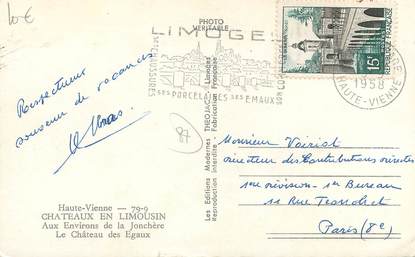 10€
PHOTO
VERITABLE
LIMOGES
SES PORCELAINES SES EMAUX
15F
1958
HAUTE-VIENNE
Respectueux
souvenir de vacances
87
Les Editions Modernes THEOJAC Limoges
Reproduction interdite Fabrication Française
Monsieur Voirist
directeur des Contributions directes
1ère division - 1er Bureau
11 Rue Tronchet
Paris (8e)
Haute-Vienne — 79-9
CHATEAUX EN LIMOUSIN
Aux Environs de la Jonchère
Le Château des Egaux